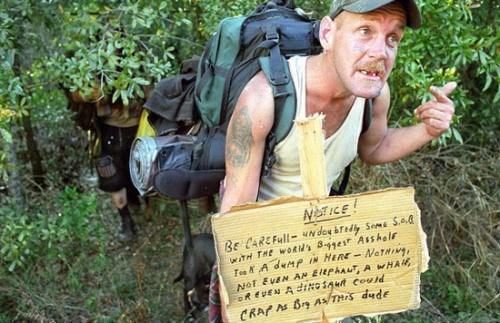 NOTICE!
BE CAREFULL - UNDOUBTEDLY SOME S.O.B.
WITH THE WORLD'S BIGGEST ASSHOLE
TOOK A DUMP IN HERE - NOTHING,
NOT EVEN AN ELEPHANT, A WHALE,
OR EVEN A DINOSAUR COULD
CRAP AS BIG AS THIS DUDE